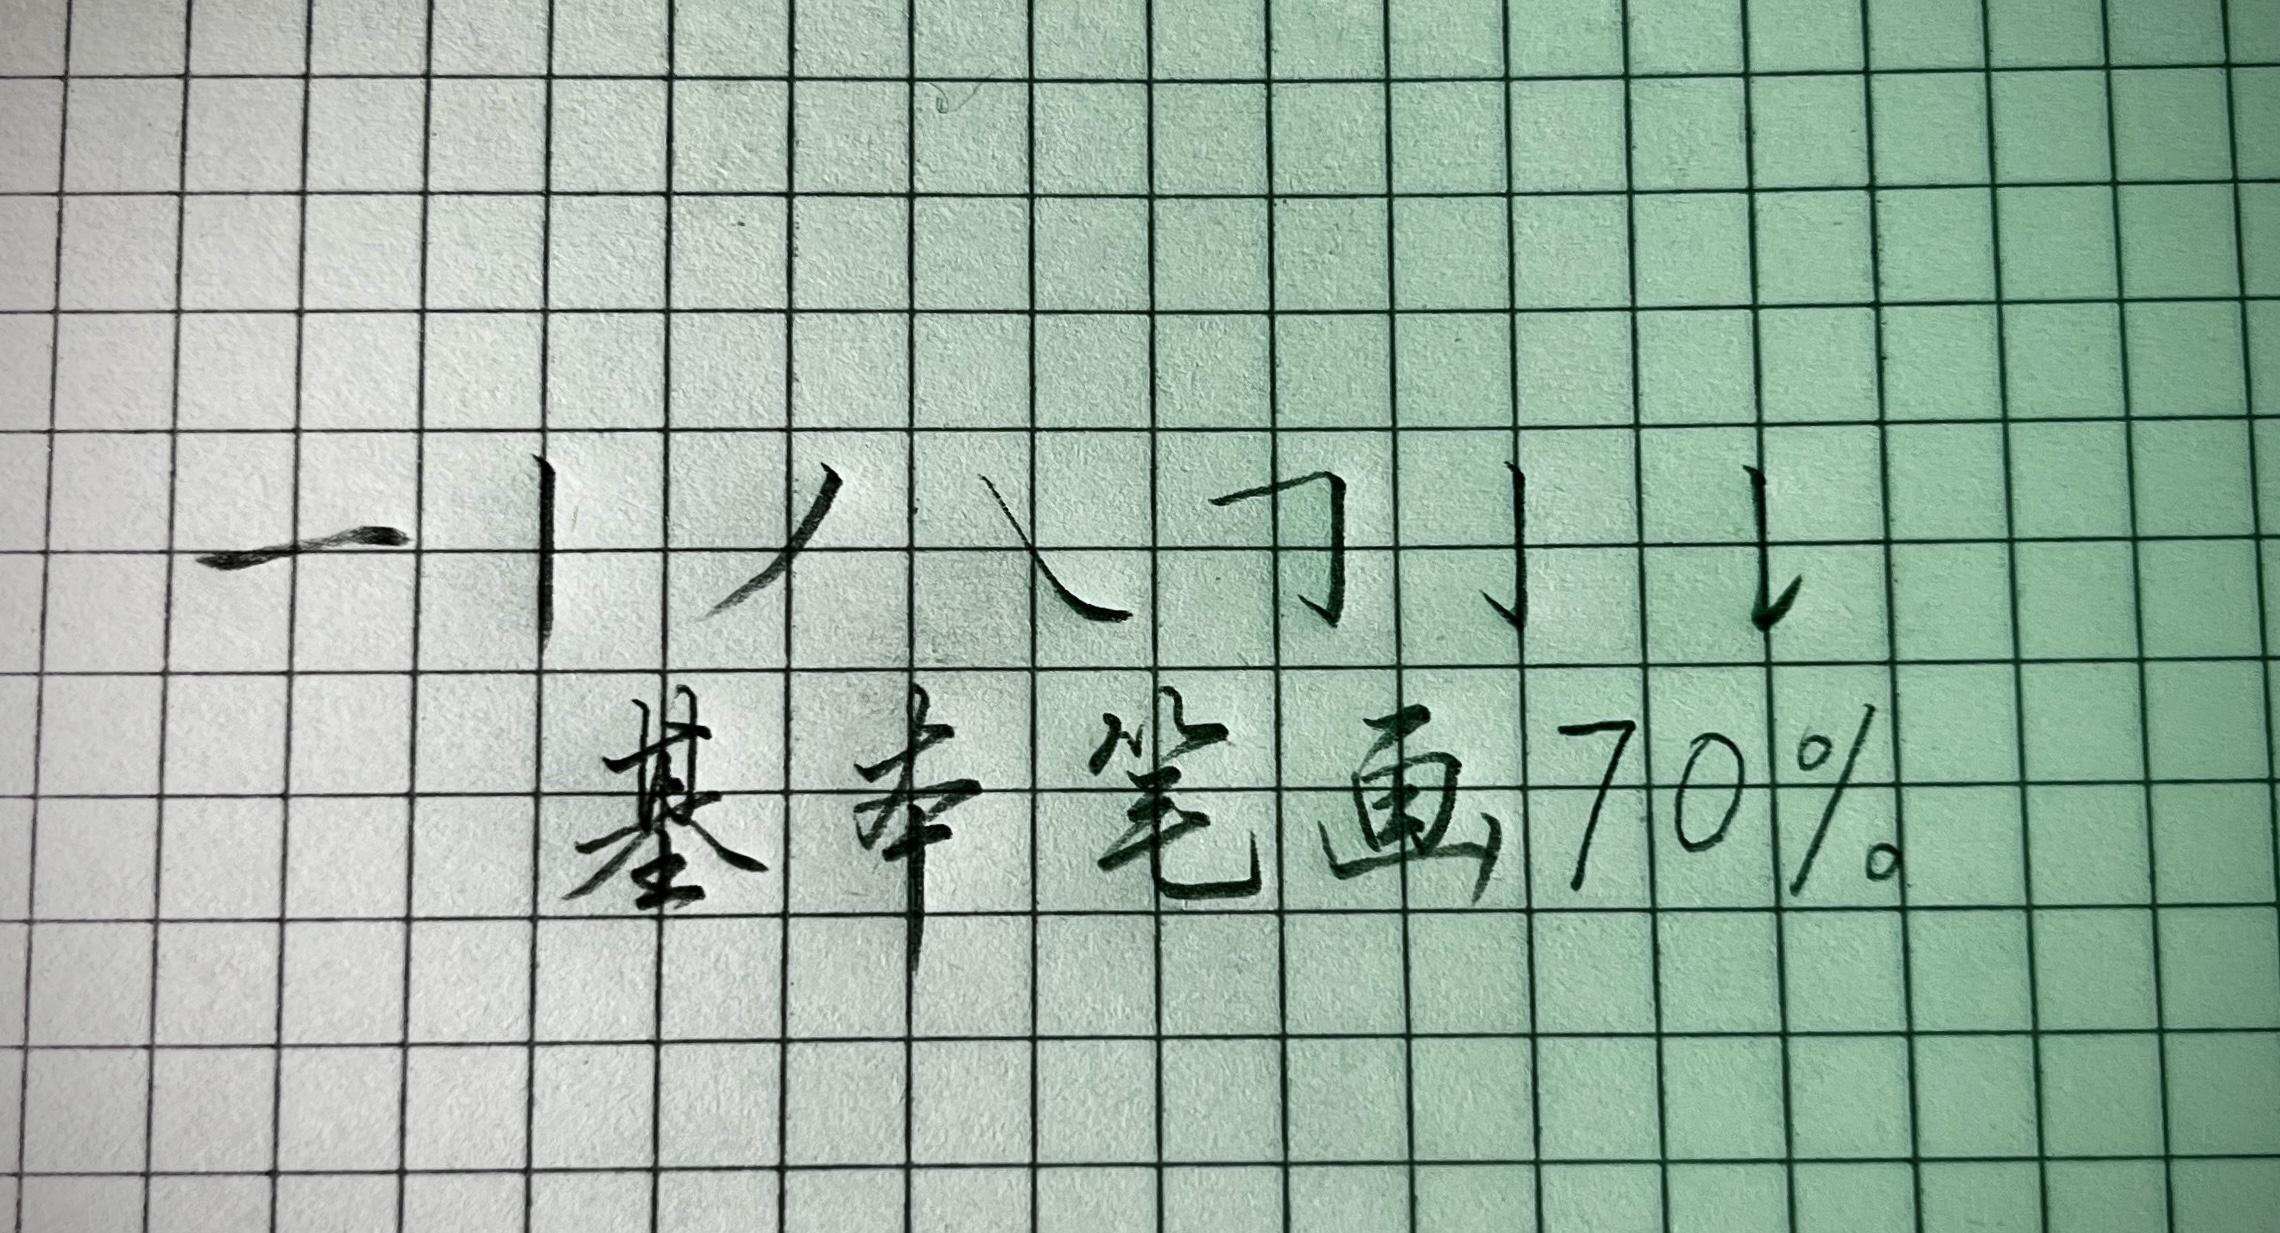 一丨丿㇏𠃌亅𠄌
基本笔画70%。